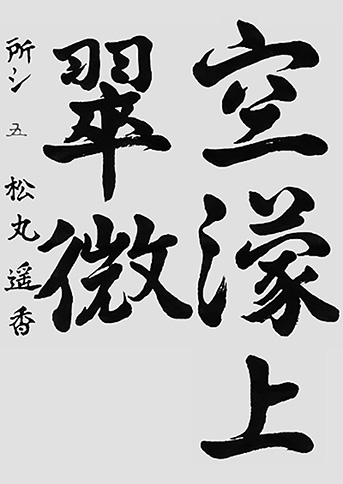 空濛上
翠微
所シ 五 松丸遥香